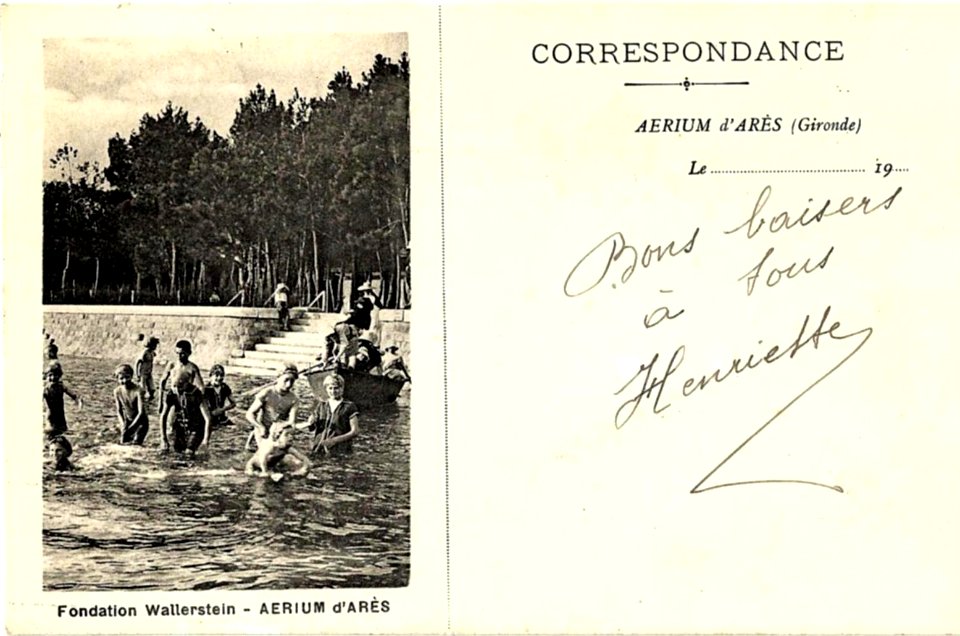 CORRESPONDANCE
AERIUM d'ARÈS (Gironde)
Le .................................... 19....
Bons baisers
à tous
Henriette
Fondation Wallerstein - AERIUM d'ARÈS